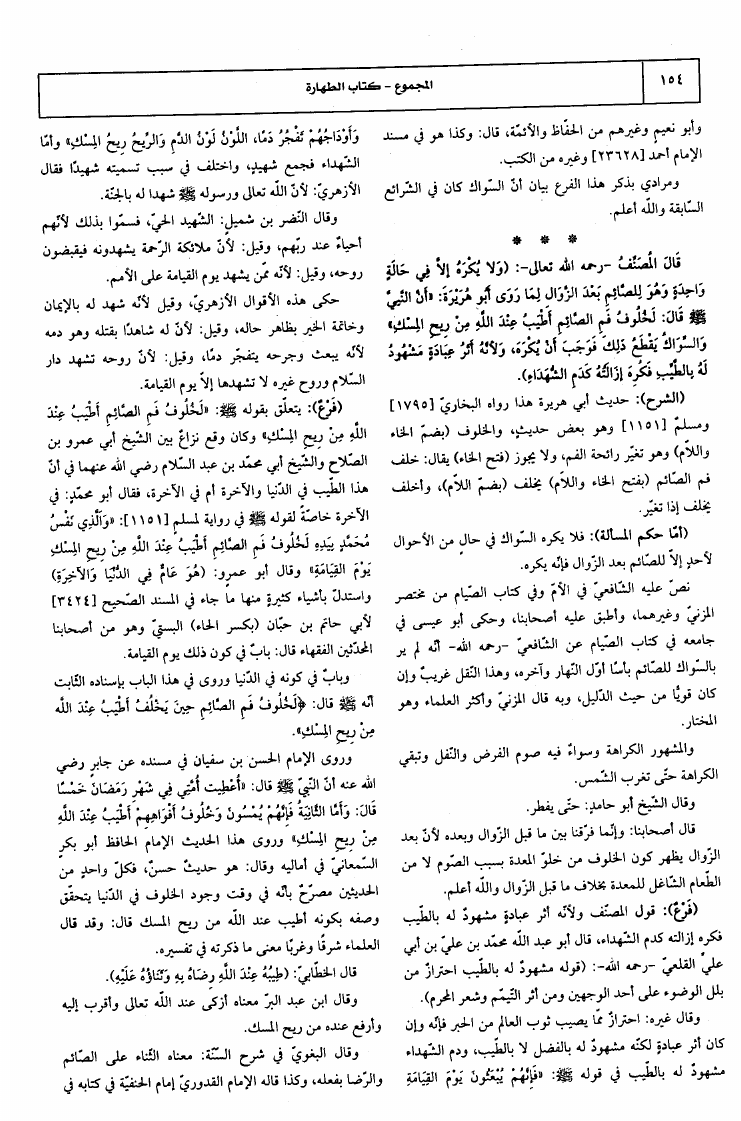 ١٥٤
المجموع - كتاب الطهارة
وأبو نعيم وغيرهم من الحفّاظ والأئمّة، قال: وكذا هو في مسند
الإمام أحمد [٢٣٦٢٨] وغيره من الكتب.
ومرادي بذكر هذا الفرع بيان أنّ السّواك كان في الشّرائع
السّابقة والله أعلم.
* * *
قَالَ المُصَنِّفُ -رحمه الله تعالى-: (وَلَا يُكْرَهُ إِلاَّ فِي حَالَةٍ
وَاحِدَةٍ وَهُوَ لِلصَّائِمِ بَعْدَ الزَّوَالِ لِمَا رَوَى أَبُو هُرَيْرَةَ: «أَنَّ النَّبِيَّ
ﷺ قَالَ: لَخُلُوفُ فَمِ الصَّائِمِ أَطْيَبُ عِنْدَ اللَّهِ مِنْ رِيحِ المِسْكِ»
وَالسِّوَاكُ يَقْطَعُ ذَلِكَ فَوَجَبَ أَنْ يُكْرَهَ، وَلِأَنَّهُ أَثَرُ عِبَادَةٍ مَشْهُودٌ
لَهُ بِالطِّيبِ فَكُرِهَ إِزَالَتُهُ كَدَمِ الشُّهَدَاءِ).
(الشرح): حديث أبي هريرة هذا رواه البخاريّ [١٧٩٥]
ومسلمٌ [١١٥١] وهو بعض حديثٍ، والخلوف (بضمّ الخاء
واللّام) وهو تغيّر رائحة الفم، ولا يجوز (فتح الخاء) يقال: خلف
فم الصّائم (بفتح الخاء واللّام) يخلف (بضمّ اللّام)، وأخلف
يخلف إذا تغيّر.
(أمّا حكم المسألة): فلا يكره السّواك في حالٍ من الأحوال
لأحدٍ إلاّ للصّائم بعد الزّوال فإنّه يكره.
نصّ عليه الشّافعيّ في الأمّ وفي كتاب الصّيام من مختصر
المزنيّ وغيرهما، وأطبق عليه أصحابنا، وحكى أبو عيسى في
جامعه في كتاب الصّيام عن الشّافعيّ -رحمه الله- أنّه لم ير
بالسّواك للصّائم بأسًا أوّل النّهار وآخره، وهذا النّقل غريبٌ وإن
كان قويًّا من حيث الدّليل، وبه قال المزنيّ وأكثر العلماء وهو
المختار.
والمشهور الكراهة وسواءٌ فيه صوم الفرض والنّفل وتبقي
الكراهة حتّى تغرب الشّمس.
وقال الشّيخ أبو حامدٍ: حتّى يفطر.
قال أصحابنا: وإنّما فرّقنا بين ما قبل الزّوال وبعده لأنّ بعد
الزّوال يظهر كون الخلوف من خلوّ المعدة بسبب الصّوم لا من
الطّعام الشّاغل للمعدة بخلاف ما قبل الزّوال والله أعلم.
(فَرْعٌ): قول المصنّف ولأنّه أثر عبادةٍ مشهودٌ له بالطّيب
فكره إزالته كدم الشّهداء، قال أبو عبد الله محمّد بن عليّ بن أبي
عليٍّ القلعيّ -رحمه الله-: (قوله مشهودٌ له بالطّيب احترازٌ من
بلل الوضوء على أحد الوجهين ومن أثر التّيمّم وشعر المحرم).
وقال غيره: احترازٌ ممّا يصيب ثوب العالم من الحبر فإنّه وإن
كان أثر عبادةٍ لكنّه مشهودٌ له بالفضل لا بالطّيب، ودم الشّهداء
مشهودٌ له بالطّيب في قوله ﷺ: «فَإِنَّهُمْ يُبْعَثُونَ يَوْمَ القِيَامَةِ
وَأَوْدَاجُهُمْ تَفْجُرُ دَمًا، اللَّوْنُ لَوْنُ الدَّمِ وَالرِّيحُ رِيحُ المِسْكِ» وأمّا
الشّهداء فجمع شهيدٍ، واختلف في سبب تسميته شهيدًا فقال
الأزهريّ: لأنّ الله تعالى ورسوله ﷺ شهدا له بالجنّة.
وقال النّضر بن شميلٍ: الشّهيد الحيّ، فسمّوا بذلك لأنّهم
أحياءٌ عند ربّهم، وقيل: لأنّ ملائكة الرّحمة يشهدونه فيقبضون
روحه، وقيل: لأنّه ممّن يشهد يوم القيامة على الأمم.
حكى هذه الأقوال الأزهريّ، وقيل لأنّه شهد له بالإيمان
وخاتمة الخير بظاهر حاله، وقيل: لأنّ له شاهدًا بقتله وهو دمه
لأنّه يبعث وجرحه يتفجّر دمًا، وقيل: لأنّ روحه تشهد دار
السّلام وروح غيره لا تشهدها إلاّ يوم القيامة.
(فَرْعٌ): يتعلّق بقوله ﷺ: «لَخُلُوفُ فَمِ الصَّائِمِ أَطْيَبُ عِنْدَ
اللَّهِ مِنْ رِيحِ المِسْكِ» وكان وقع نزاعٌ بين الشّيخ أبي عمرو بن
الصّلاح والشّيخ أبي محمّد بن عبد السّلام رضي الله عنهما في أنّ
هذا الطّيب في الدّنيا والآخرة أم في الآخرة، فقال أبو محمّدٍ: في
الآخرة خاصّةً لقوله ﷺ في رواية لمسلمٍ [١١٥١]: «وَالَّذِي نَفْسُ
مُحَمَّدٍ بِيَدِهِ لَخُلُوفُ فَمِ الصَّائِمِ أَطْيَبُ عِنْدَ اللَّهِ مِنْ رِيحِ المِسْكِ
يَوْمَ القِيَامَةِ» وقال أبو عمرٍو: (هُوَ عَامٌّ فِي الدُّنْيَا وَالآخِرَةِ)
واستدلّ بأشياء كثيرةٍ منها ما جاء في المسند الصّحيح [٣٤٢٤]
لأبي حاتم بن حبّان (بكسر الحاء) البستيّ وهو من أصحابنا
المحدّثين الفقهاء قال: بابٌ في كون ذلك يوم القيامة.
وبابٌ في كونه في الدّنيا وروى في هذا الباب بإسناده الثّابت
أنّه ﷺ قال: «لَخُلُوفُ فَمِ الصَّائِمِ حِينَ يَخْلُفُ أَطْيَبُ عِنْدَ اللَّهِ
مِنْ رِيحِ المِسْكِ».
وروى الإمام الحسن بن سفيان في مسنده عن جابرٍ رضي
الله عنه أنّ النّبيّ ﷺ قال: «أُعْطِيَت أُمَّتِي فِي شَهْرِ رَمَضَانَ خَمْسًا
قَالَ: وَأَمَّا الثَّانِيَةُ فَإِنَّهُمْ يُمْسُونَ وَخُلُوفُ أَفْوَاهِهِمْ أَطْيَبُ عِنْدَ اللَّهِ
مِنْ رِيحِ المِسْكِ» وروى هذا الحديث الإمام الحافظ أبو بكرٍ
السّمعانيّ في أماليه وقال: هو حديثٌ حسنٌ، فكلّ واحدٍ من
الحديثين مصرّحٌ بأنّه في وقت وجود الخلوف في الدّنيا يتحقّق
وصفه بكونه أطيب عند الله من ريح المسك قال: وقد قال
العلماء شرقًا وغربًا معنى ما ذكرته في تفسيره.
قال الخطّابيّ: (طِيبُهُ عِنْدَ اللَّهِ رِضَاهُ بِهِ وَثَنَاؤُهُ عَلَيْهِ).
وقال ابن عبد البرّ معناه أزكى عند الله تعالى وأقرب إليه
وأرفع عنده من ريح المسك.
وقال البغويّ في شرح السّنّة: معناه الثّناء على الصّائم
والرّضا بفعله، وكذا قاله الإمام القدوريّ إمام الحنفيّة في كتابه في